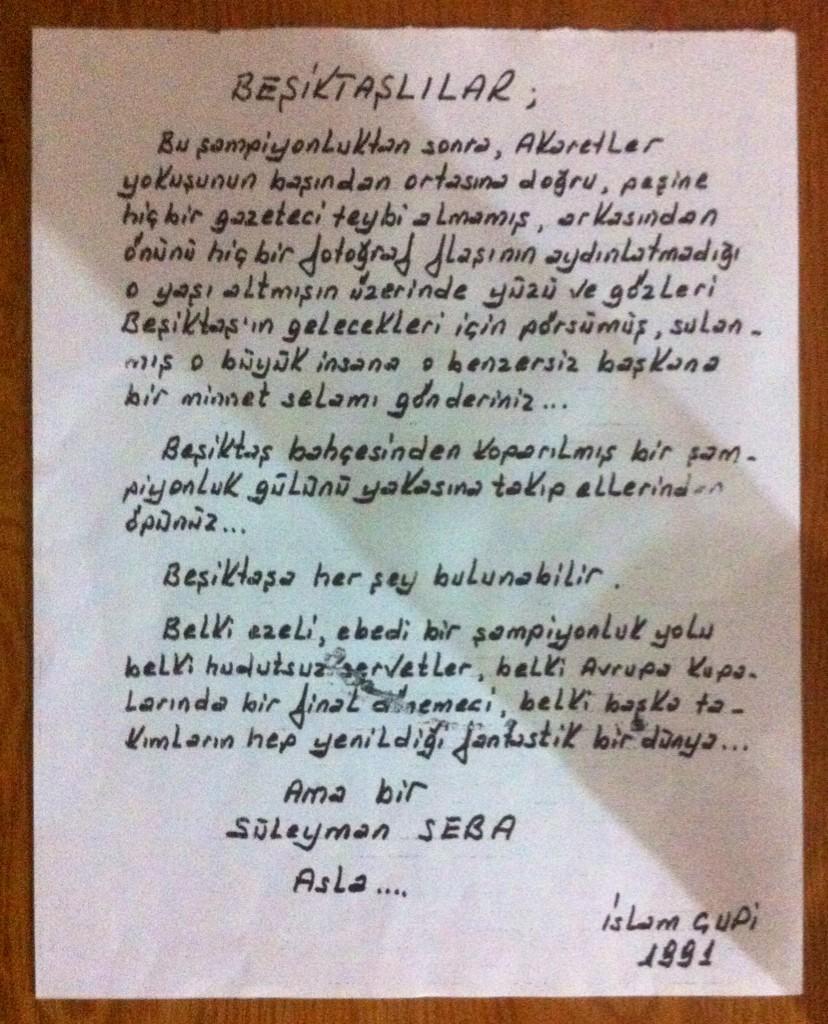 BEŞİKTAŞLILAR;
Bu şampiyonluktan sonra, Akaretler
yokuşunun başından ortasına doğru, peşine
hiç bir gazeteci teybi almamış, arkasından
önünü hiç bir fotoğraf flaşının aydınlatmadığı
o yaşı altmışın üzerinde yüzü ve gözleri
Beşiktaş'ın gelecekleri için pörsümüş, sulan-
mış o büyük insana o benzersiz başkana
bir minnet selamı gönderiniz...
Beşiktaş bahçesinden koparılmış bir şam-
piyonluk gülünü yakasına takıp ellerinden
öpünüz...
Beşiktaşa her şey bulunabilir.
Belki ezeli, ebedi bir şampiyonluk yolu
belki hudutsuz servetler, belki Avrupa kupa-
larında bir final dönemeci, belki başka ta-
kımların hep yenildiği fantastik bir dünya...
Ama bir
Süleyman SEBA
Asla....
İslam ÇUPİ
1991